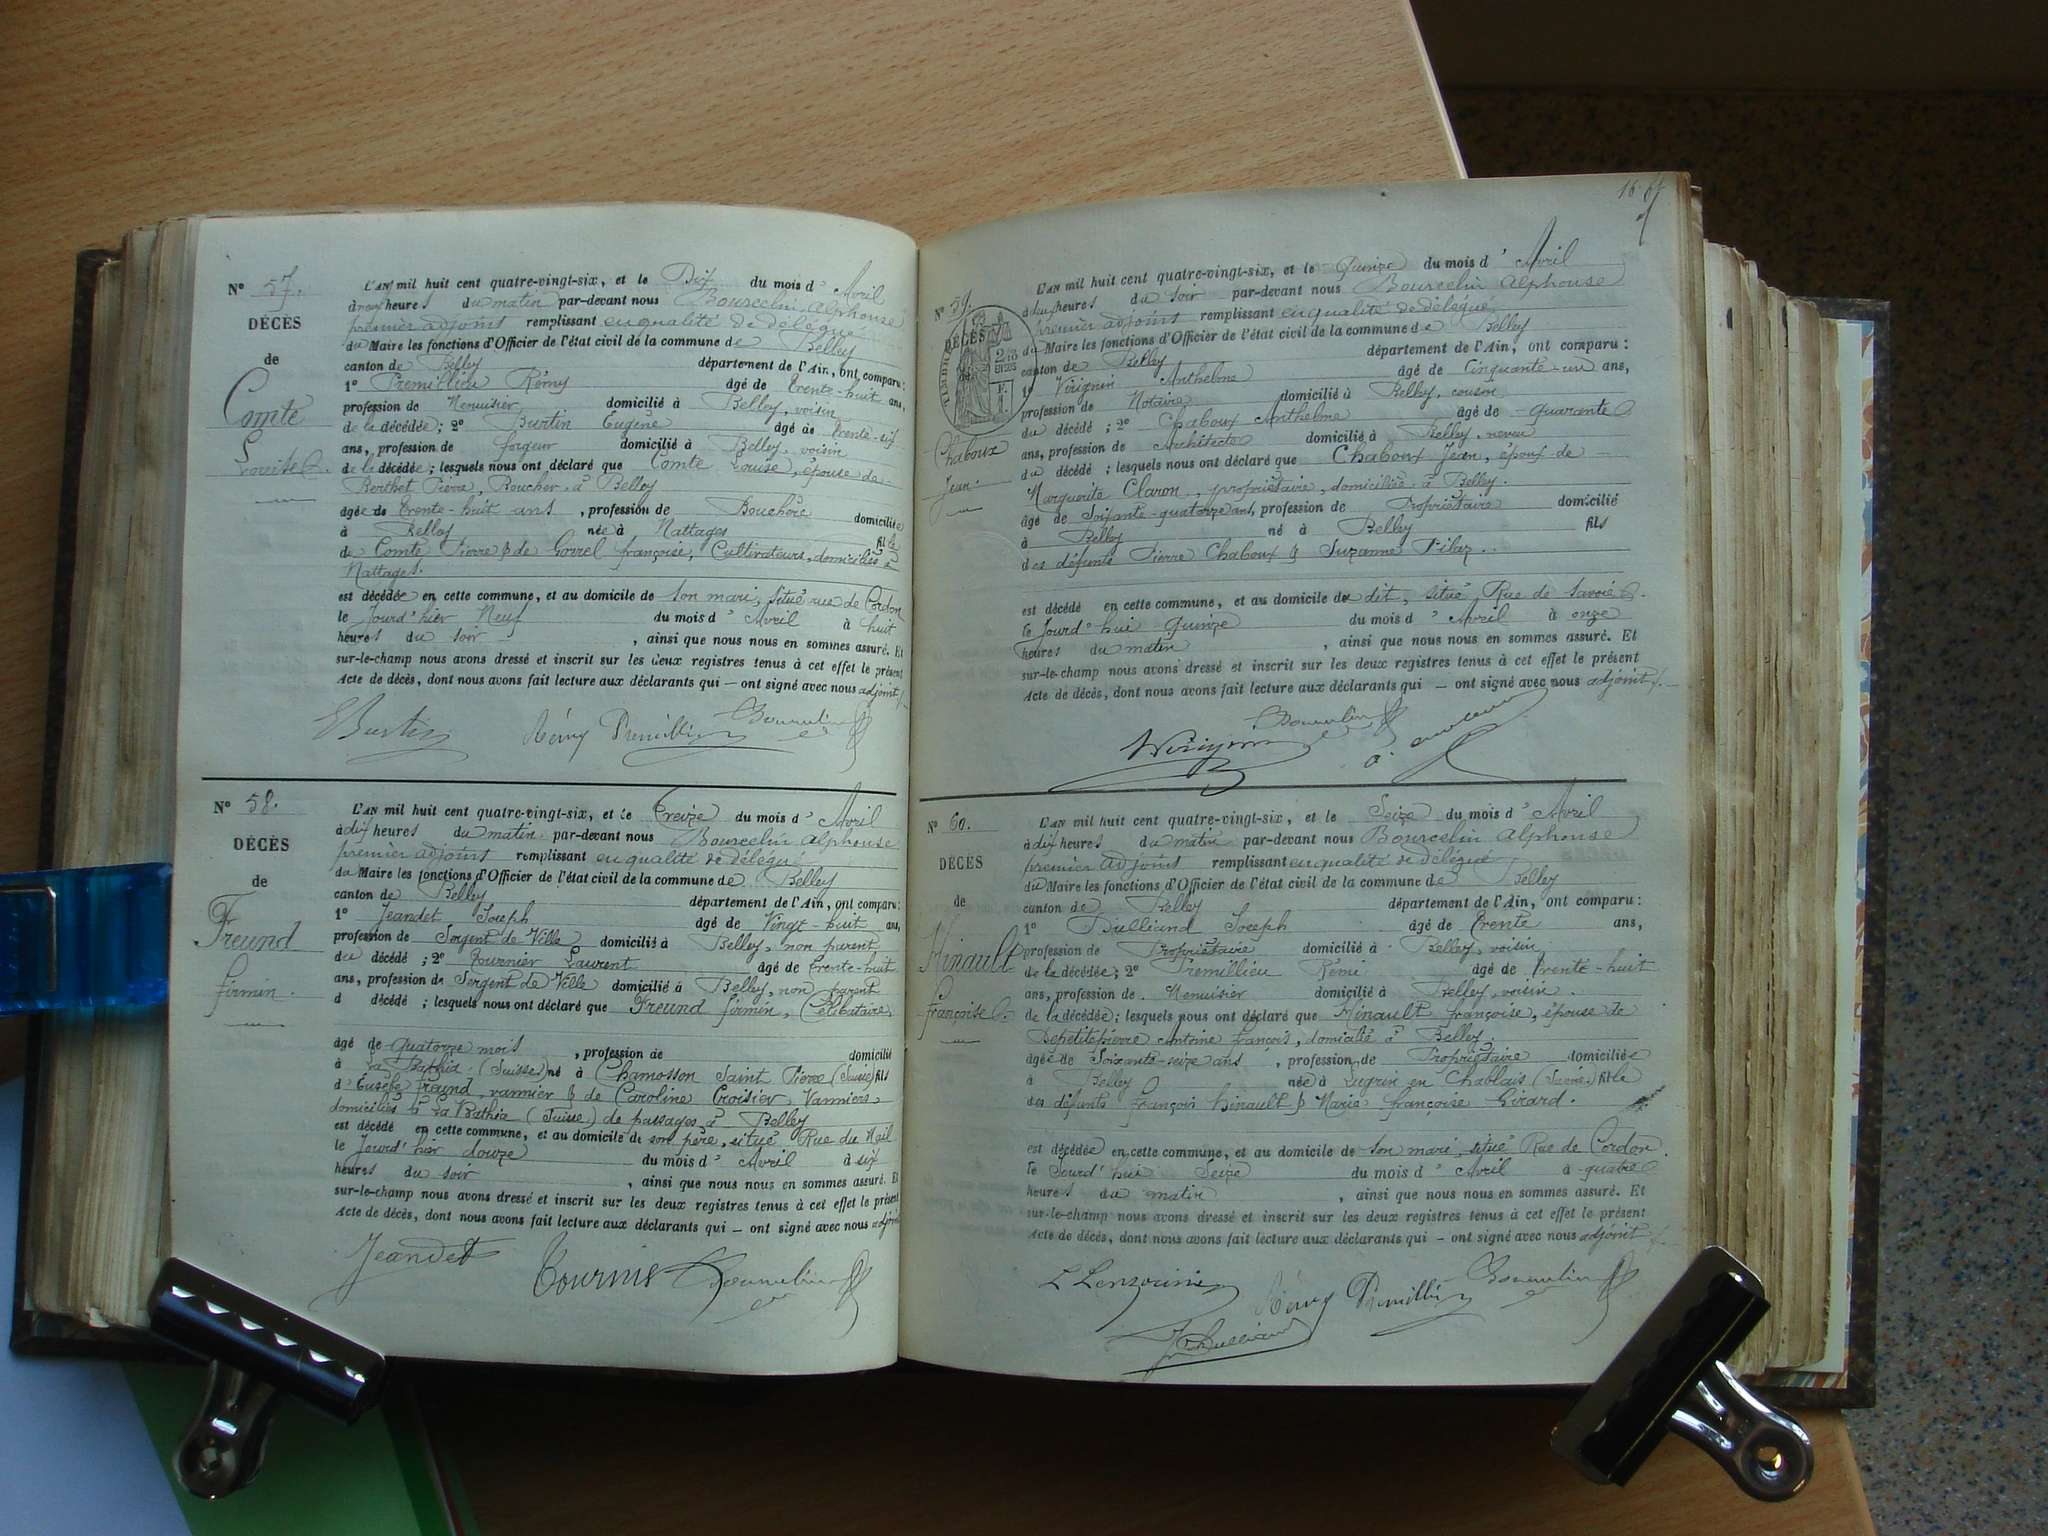 N° 57.
DÉCÈS
de
Comte
Louise
L'AN mil huit cent quatre-vingt-six, et le Dix du mois d' Avril
à neuf heures du matin par-devant nous Bourcelin Alphonse
premier adjoint remplissant en qualité de délégué
du Maire les fonctions d'Officier de l'état civil de la commune de Belley
canton de Belley département de l'Ain, ont comparu :
1° Premillieu Rémy âgé de trente-huit ans,
profession de Menuisier domicilié à Belley, voisin
de la décédée ; 2° Burtin Eugène âgé de trente-six
ans, profession de forgeur domicilié à Belley, voisin
de la décédée ; lesquels nous ont déclaré que Comte Louise, épouse de
Berthet Pierre, Boucher, à Belley
âgée de trente-huit ans, profession de Bouchère domiciliée
à Belley née à Nattages fille
de Comte Pierre & de Gorrel françoise, Cultivateurs, domiciliés à
Nattages.
est décédée en cette commune, et au domicile de son mari, situé rue de Cordon
le Jourd'hier Neuf du mois d' Avril à huit
heures du soir, ainsi que nous nous en sommes assuré. Et
sur-le-champ nous avons dressé et inscrit sur les deux registres tenus à cet effet le présent
Acte de décès, dont nous avons fait lecture aux déclarants qui — ont signé avec nous adjoint
EBurtin Rémy Premillieu Bourcelin
N° 58.
DÉCÈS
de
Freund
firmin.
L'AN mil huit cent quatre-vingt-six, et le Treize du mois d' Avril
à dix heures du matin par-devant nous Bourcelin Alphonse
premier adjoint remplissant en qualité de délégué
du Maire les fonctions d'Officier de l'état civil de la commune de Belley
canton de Belley département de l'Ain, ont comparu :
1° Jeandet Joseph âgé de Vingt-huit ans,
profession de Sergent de Ville domicilié à Belley, non parent
du décédé ; 2° Tournier Laurent âgé de trente-huit
ans, profession de Sergent de Ville domicilié à Belley, non parent
d décédé ; lesquels nous ont déclaré que Freund firmin, Célibataire
âgé de quatorze mois, profession de domicilié
à La Bathia (Suisse) né à Chamosson Saint Pierre (Suisse) fils
d'Eusèbe Freund, vannier & de Caroline Croisier, Vanniers
domiciliés à La Bathia (Suisse) de passages à Belley
est décédé en cette commune, et au domicile de son père, situé Rue du Mail
le Jourd'hier douze du mois d' Avril à six
heures du soir, ainsi que nous nous en sommes assuré. Et
sur-le-champ nous avons dressé et inscrit sur les deux registres tenus à cet effet le présent
Acte de décès, dont nous avons fait lecture aux déclarants qui — ont signé avec nous adjoint
Jeandet Tournier Bourcelin
N° 59.
DÉCÈS
de
TIMBRE
2/10
EN SUS
Chaboux
Jean.
L'AN mil huit cent quatre-vingt-six, et le Quinze du mois d' Avril
à deux heures du soir par-devant nous Bourcelin Alphonse
premier adjoint remplissant en qualité de délégué
du Maire les fonctions d'Officier de l'état civil de la commune de Belley
canton de Belley département de l'Ain, ont comparu :
1° Virignin Anthelme âgé de Cinquante-un ans,
profession de Notaire domicilié à Belley, cousin
du décédé ; 2° Chaboux Anthelme âgé de quarante
ans, profession de Architecte domicilié à Belley, neveu
du décédé ; lesquels nous ont déclaré que Chaboux Jean, époux de
Marguerite Claron, propriétaire, domiciliée à Belley.
âgé de Soixante-quatorze ans, profession de Propriétaire domicilié
à Belley né à Belley fils
des défunts Pierre Chaboux & Suzanne Pilaz.
est décédé en cette commune, et au domicile du dit, situé, Rue de Savoie.
le Jourd'hui Quinze du mois d' Avril à onze
heures du matin, ainsi que nous nous en sommes assuré. Et
sur-le-champ nous avons dressé et inscrit sur les deux registres tenus à cet effet le présent
Acte de décès, dont nous avons fait lecture aux déclarants qui — ont signé avec nous adjoint
Bourcelin
Virignin
N° 60.
DÉCÈS
de
Hinault
françoise.
L'AN mil huit cent quatre-vingt-six, et le Seize du mois d' Avril
à dix heures du matin par-devant nous Bourcelin Alphonse
premier adjoint remplissant en qualité de délégué
du Maire les fonctions d'Officier de l'état civil de la commune de Belley
canton de Belley département de l'Ain, ont comparu :
1° Dulliand Joseph âgé de trente ans,
profession de Propriétaire domicilié à Belley, voisin
de la décédée ; 2° Premillieu Rémi âgé de trente-huit
ans, profession de Menuisier domicilié à Belley, voisin.
de la décédée ; lesquels nous ont déclaré que Hinault françoise, épouse de
Depetitepierre Antoine françois, domicilié à Belley.
âgée de Soixante-seize ans, profession de Propriétaire domiciliée
à Belley née à Lugrin en Chablais (Savoie) fille
des défunts françois Hinault & Marie françoise Girard.
est décédée en cette commune, et au domicile de son mari, situé Rue de Cordon.
le Jourd'hui Seize du mois d' Avril à quatre
heures du matin, ainsi que nous nous en sommes assuré. Et
sur-le-champ nous avons dressé et inscrit sur les deux registres tenus à cet effet le présent
Acte de décès, dont nous avons fait lecture aux déclarants qui — ont signé avec nous adjoint
Rémy Premillieu Bourcelin
Jh Dulliand